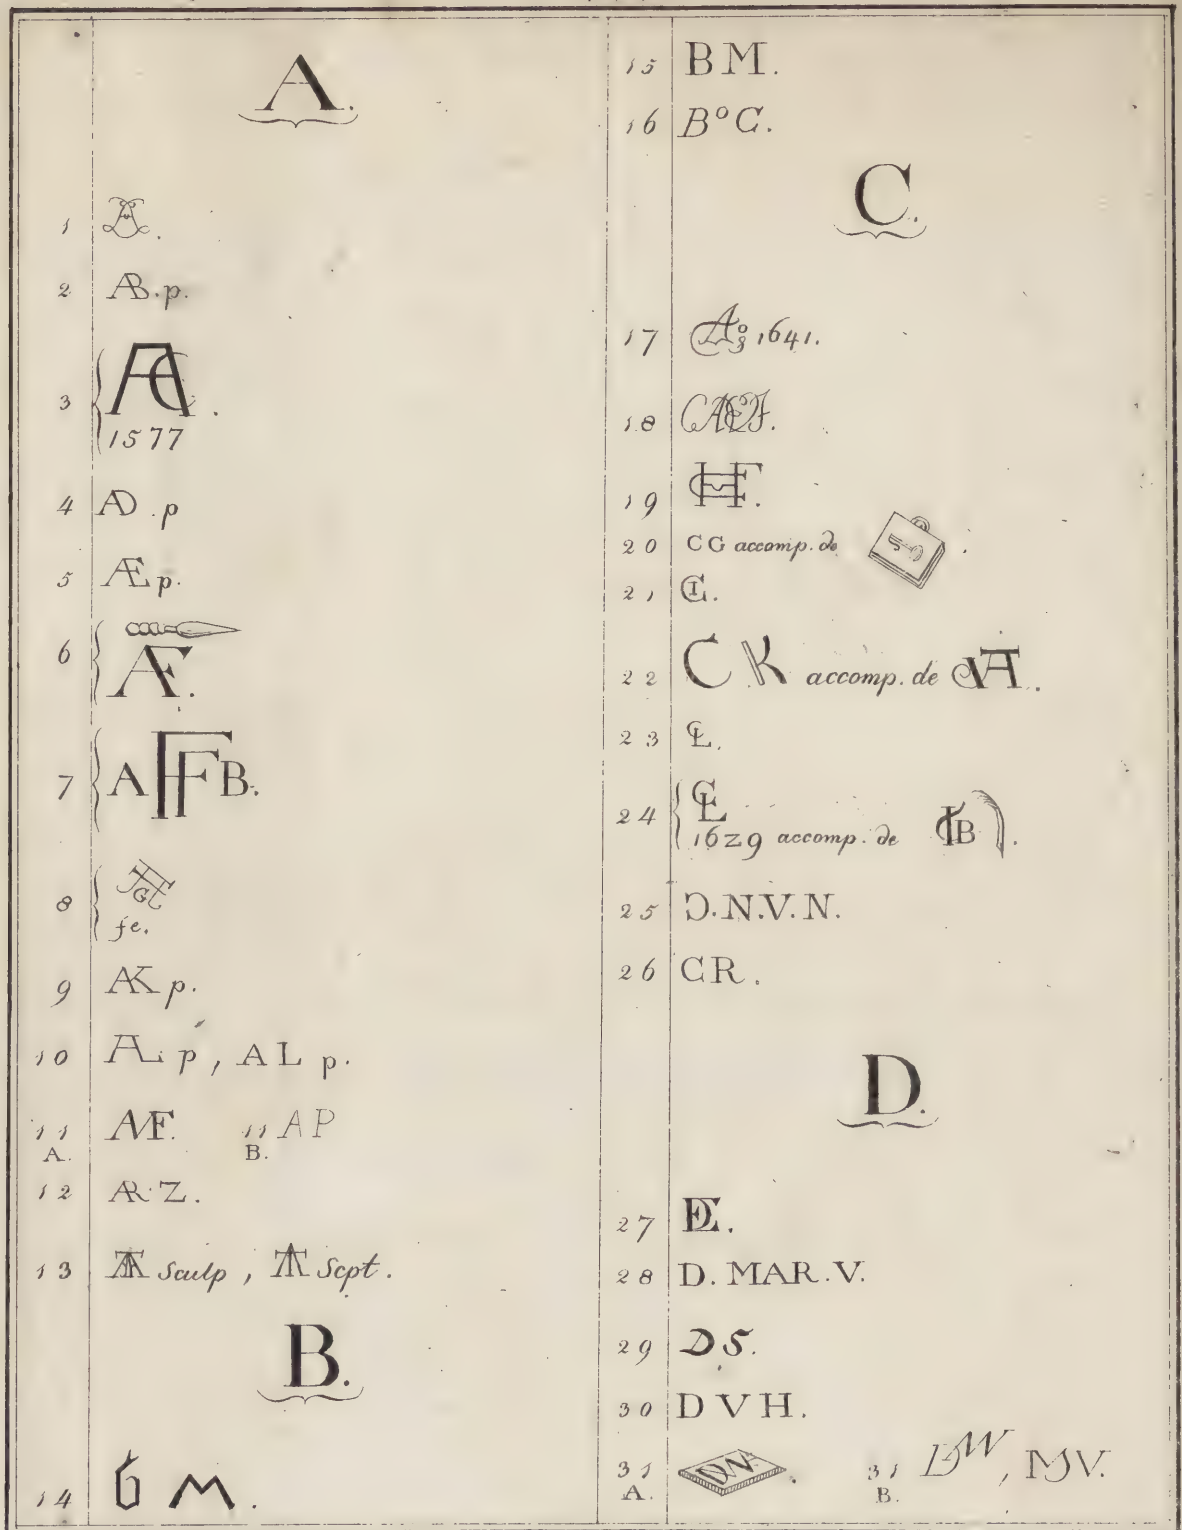 A.
1
2 AB. p.
3 AC.
1577
4 AD. p
5 AE p.
6 AF.
7 AFFB.
8
fe.
9 AK p.
10 AL p, AL p.
11 A. MF. 11 B. AP
12 AR. Z.
13 AT Sculp, AT Scpt.
B.
14 b M.
15 BM.
16 BºC.
C.
17 1641.
18
19 CHF.
20 CG accomp. de
21 CI.
22 C K accomp. de
23 CL.
24 CL
1629 accomp. de
25 Ɔ. N. V. N.
26 CR.
D.
27 DE.
28 D. MAR. V.
29 DS.
30 DVH.
31 A. DW. 31 B. DW, MV.